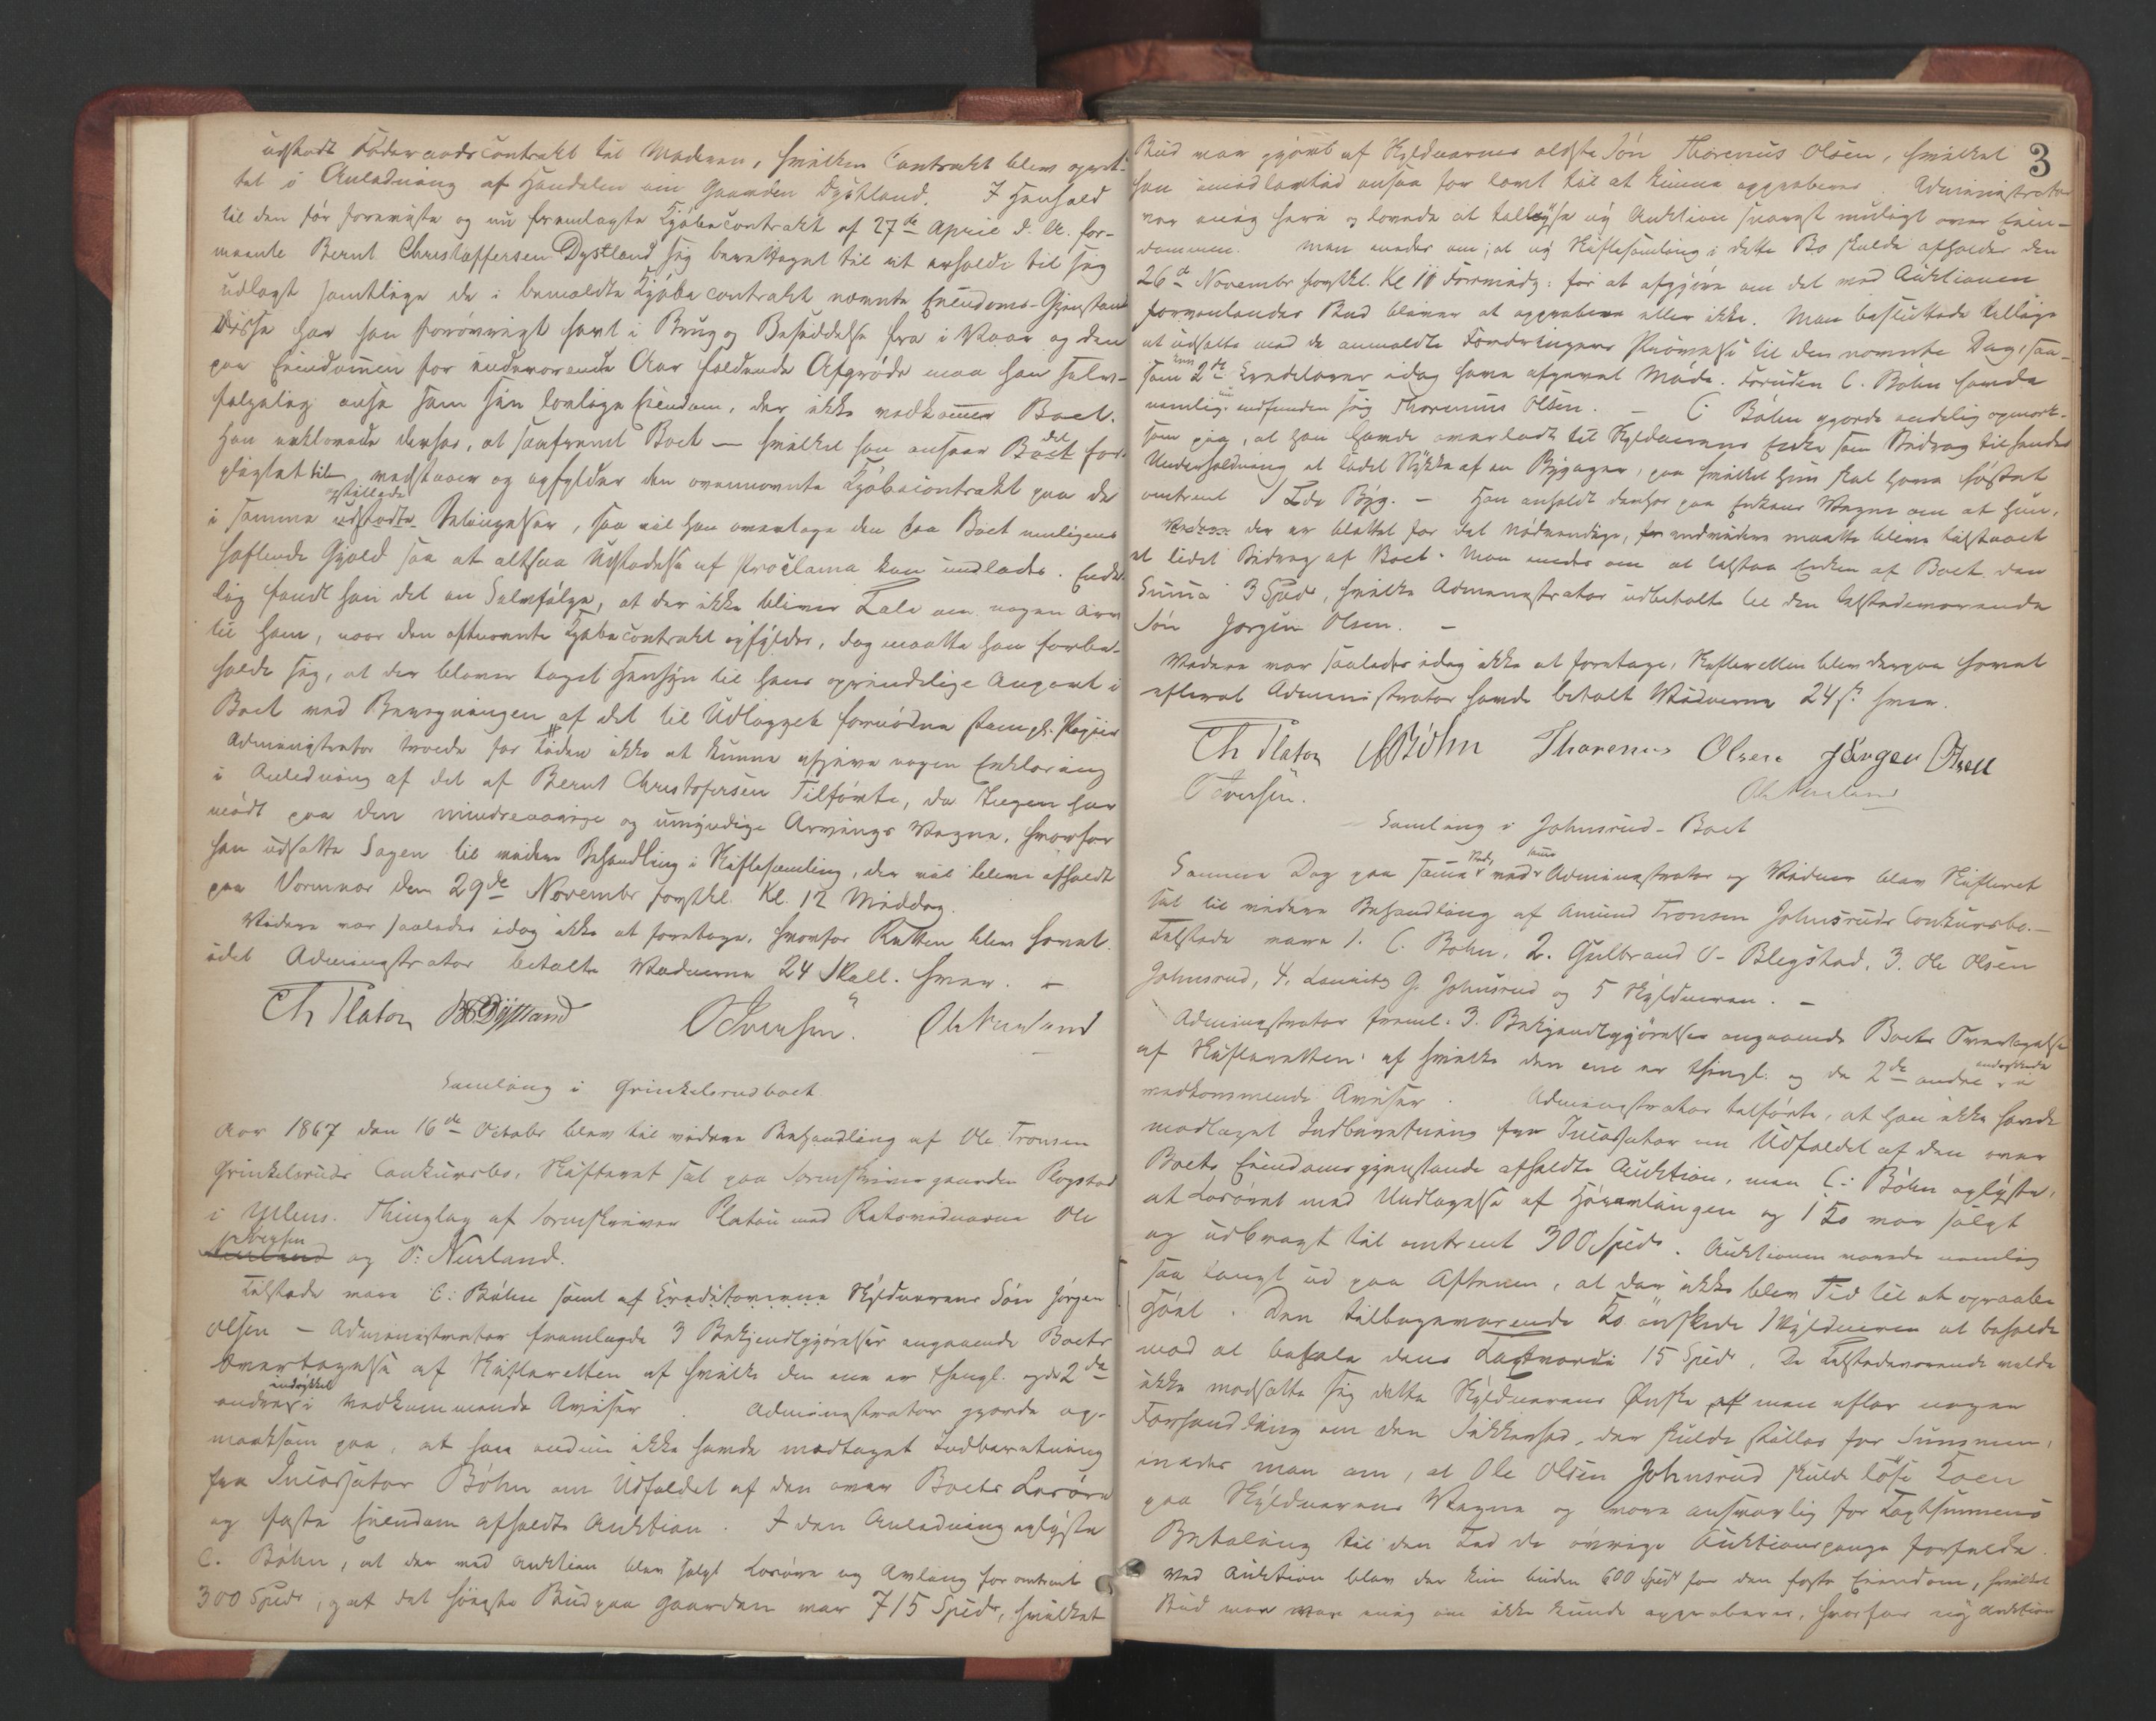 udstedt Föderaadscontrakt til Moderen, hvilken Contrakt blev opret-
tet i Anledning af Handelen om Gaarden Dystland. I Henhold
til den før foreviste og nu fremlagte Kjøbecontrakt af 27de April d. A. for-
meente Bernt Christoffersen Dystland sig berettiget til at erholde til sig
udlagt samtlige de i bemeldte Kjøbecontrakt nævnte Eiendoms-Gjenstande
Disse har han forøvrigt havt i Brug og Besiddelse fra i Vaar og den
paa Eiendommen for indeværende Aar faldende Afgrøde maa han selv-
følgelig anse som sin lovlige Eiendom, der ikke vedkommer Boet.
Han erklærede derhos, at saafremt Boet — hvilket han anseer det for-
pligtet til vedstaaer og opfylder den ovennævnte Kjøbecontrakt paa de
i samme opstillede Betingelser, saa vil han overtage den paa Boet muligens
heftende Gjæld saa at altsaa Udstedelse af Proclama kan undlades. Ende-
lig fandt han det en Selvfølge, at der ikke bliver Tale om nogen Arv
til ham, naar den oftnævnte Kjøbecontrakt opfyldes, dog maatte han forbe-
holde sig, at der bliver taget Hensyn til hans oprindelige Anpart i
Boet ved Beregningen af det til Udlægget fornødne stempl. Papiir
Administrator troede for Tiden ikke at kunne afgive nogen Erklæring
i Anledning af det af Bernt Christofersen Tilførte, da Ingen har
mødt paa den mindreaarige og umyndige Arvings Vegne, hvorfor
han udsatte Sagen til videre Behandling i Skiftesamling, der vil blive afholdt
paa Vormnæs den 29de Novembr førstkl. Kl. 12 Middag.
Videre var saaledes idag ikke at foretage, hvorfor Retten blev hævet.
idet Administrator betalte Vidnerne 24 Skill. hver. —
Ch Platou BCDystland OIversen. Ole Nuland
Samling i Grinkelsrudboet
Aar 1867 den 16de Octobr blev til videre Behandling af Ole Tronsen
Grinkelsruds Conkursbo, Skifteret sat paa Sorenskrivergaarden Rogstad
i Ullens. Thinglag af Sorenskriver Platou med Retsvidnerne Ole
Iversen og O. Nurland.
Tilstede vare C. Böhn samt af Creditorerne Skyldnerens Søn Jørgen
Olsen — Administrator fremlagde 3 Bekjendtgjørelser angaaende Boets
Overtagelse af Skifteretten af hvilke den ene er thingl. og de 2de
andre indrykket i vedkommende Aviser. Administrator gjorde op-
mærksom paa, at han endnu ikke havde modtaget Indberetning
fra Incassator Böhn om Udfaldet af den over Boets Løsøre
og faste Eiendom afholdte Auktion. I den Anledning oplyste
C. Böhn, at der ved Auktion blev solgt Løsøre og Avling for omtrent
300 Spdr, og at det høieste Bud paa Gaarden var 715 Spdr, hvilket
3
Bud var gjort af Skyldnerens ældste Søn Thorenius Olsen, hvilket
han imidlertid ansaa for lavt til at kunne approberes. Administrator
var enig heri og lovede at tillyse ny Auktion snarest muligt over Eien-
dommen. Man enedes om, at ny Skiftesamling i dette Bo skulde afholdes den
26de Novembr førstkl. Kl 10 Formidg: for at afgjøre om det ved Auktionen
forventendes Bud bliver at approbere eller ikke. Man besluttede tillige
at udsætte med de anmeldte Fordringers Prøvelse til den nævnte Dag, saa-
som kun 2de Creditorer idag have afgivet Møde. Foruden C. Böhn havde
nemlig indfunden sig Thorenius Olsen. — C. Böhn gjorde endelig opmærk-
som paa, at han havde overladt til Skyldnerens Enke som Bidrag til hendes
Underholdning et lidet Stykke af en Bygager, paa hvilket hun skal have høstet
omtrent 1 Tde Byg. — Han anholdt derhos paa Enkens Vegne om at hun,
der er blottet for det Nødvendige, endvidere maatte blive tilstaaet
et lidet Bidrag af Boet. Man enedes om at tilstaa Enken af Boet den
Summa 3 Spdr, hvilke Administrator udbetalte til den tilstedeværende
Søn Jørgen Olsen. —
Videre var saaledes idag ikke at foretage, Skifteretten blev derpaa hævet
efterat Administrator havde betalt Vidnerne 24 s. hver.
Ch Platou CBöhn Thorenius Olsen Jörgen Olsen
OIversen. Ole Nurland
Samling i Johnsrud-Boet
Samme Dag paa samme Sted, ved samme Administrator og Vidner blev Skifteret
sat til videre Behandling af Amund Tronsen Johnsruds Conkursbo.—
Tilstede vare 1. C. Bohn, 2. Gulbrand O. Blegstad, 3. Ole Olsen
Johnsrud, 4. Lauritz G. Johnsrud og 5 Skyldneren. —
Administrator freml. 3. Bekjendtgjørelser angaaende Boets Overtagelse
af Skifteretten, af hvilke den ene er thingl. og de 2de andre i
vedkommende Aviser. Administrator tilførte, at han ikke havde
modtaget Indberetning fra Incassator om Udfaldet af den over
Boets Eiendomsgjenstande afholdte Auktion, men C. Böhn oplyste,
at Løsøret med Undtagelse af Høavlingen og 1 Ko var solgt
og udbragt til omtrent 300 Spdr. Auktionen varede nemlig
saa langt ud paa Aftenen, at der ikke blev Tid til at opraabe
Høet. Den tilbageværende Ko ønskede Skyldneren at beholde
mod at betale dens Taxtværdi 15 Spdr. De Tilstedeværende vilde
ikke modsætte sig dette Skyldnerens Ønske men efter nogen
Forhandling om den Sikkerhed, der skulde stilles for Summen,
enedes man om, at Ole Olsen Johnsrud skulde løse Koen
paa Skyldnerens Vegne og være ansvarlig for Taxtsummens
Betaling til den Tid de øvrige Auktionspenge forfalde.
Ved Auktion blev der kun buden 600 Spdr for den faste Eiendom, hvilket
Bud man var enig om ikke kunde approberes, hvorfor ny Auktion